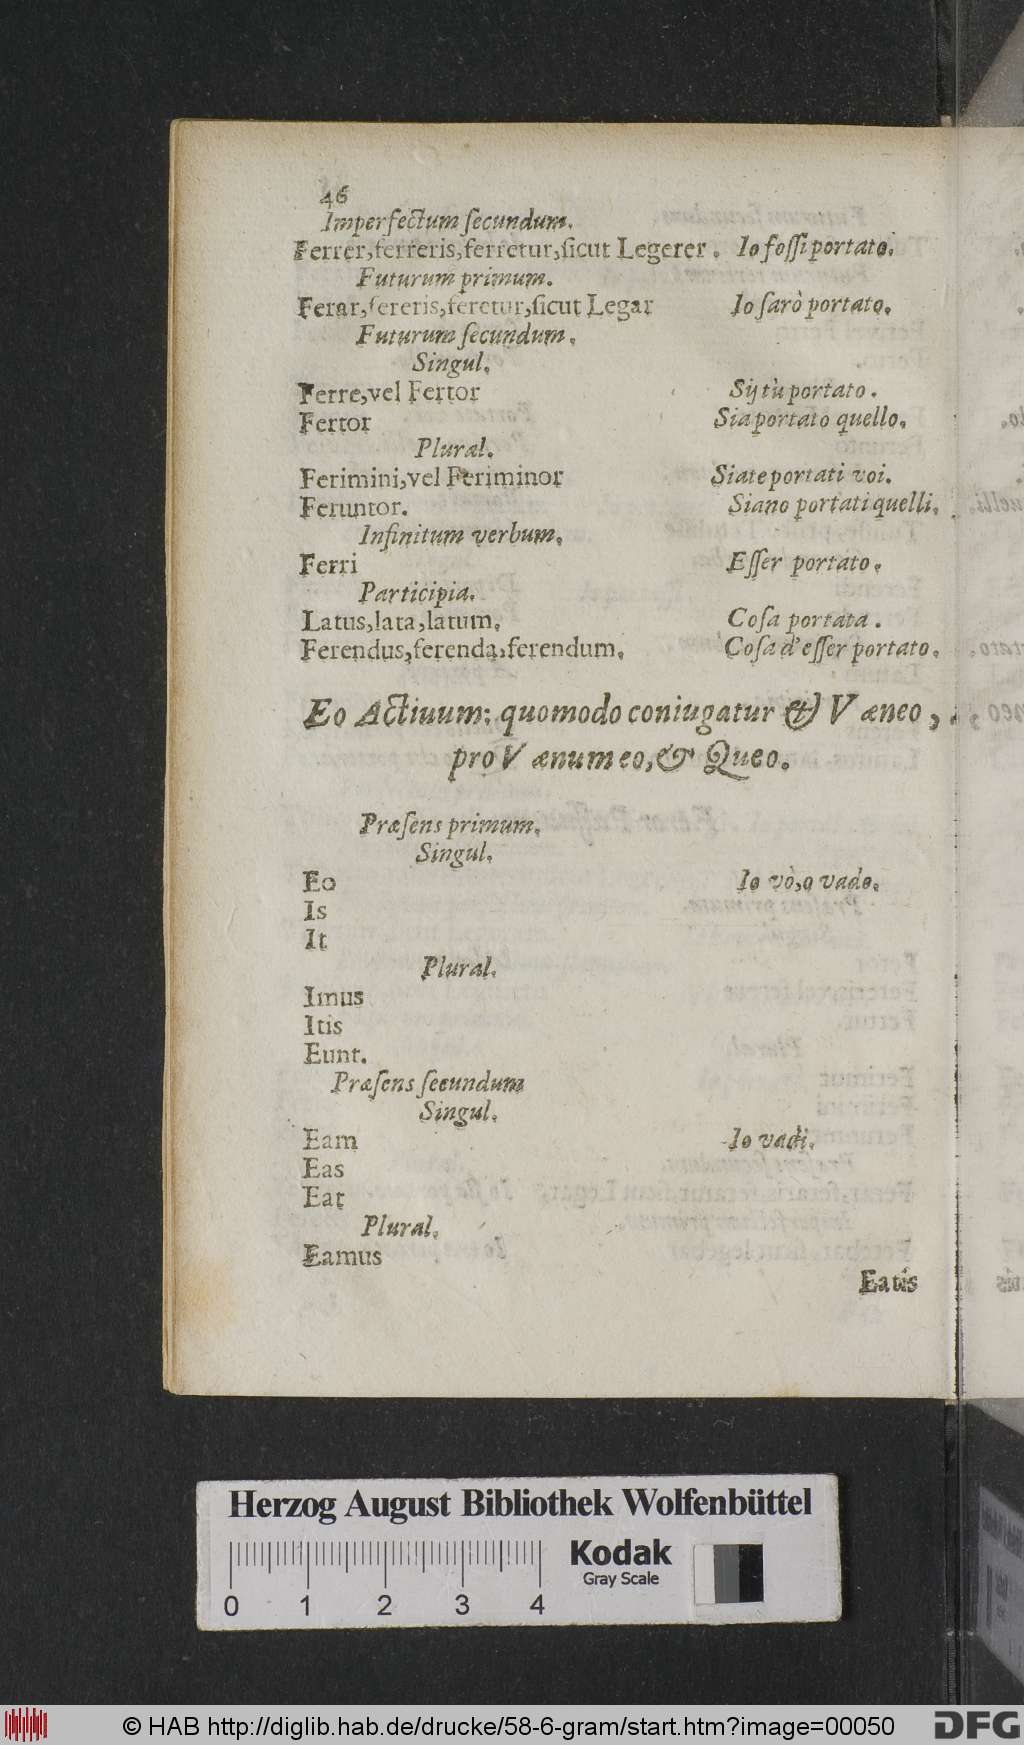 46
Imperfectum ſecundum.
Ferrer, ferreris, ferretur, ſicut Legerer. Io foſſi portato.
Futurum primum.
Ferar, fereris, feretur, ſicut Legar Io ſarò portato.
Futurum ſecundum.
Singul.
Ferre, vel Fertor Sij tù portato.
Fertor Sia portato quello.
Plural.
Ferimini, vel Feriminor Siate portati voi.
Feruntor. Siano portati quelli.
Infinitum verbum.
Ferri Eſſer portato.
Participia.
Latus, lata, latum. Coſa portata.
Ferendus, ferenda, ferendum. Coſa d'eſſer portato.
Eo Actiuum: quomodo coniugatur & Væneo,
pro Vænum eo, & Queo.
Præſens primum.
Singul.
Eo Io vò, o vado.
Is
It
Plural.
Imus
Itis
Eunt.
Præſens ſecundum
Singul.
Eam Io vadi.
Eas
Eat
Plural.
Eamus
Eatis
Herzog August Bibliothek Wolfenbüttel
Kodak
Gray Scale
0 1 2 3 4
© HAB http://diglib.hab.de/drucke/58-6-gram/start.htm?image=00050 DFG